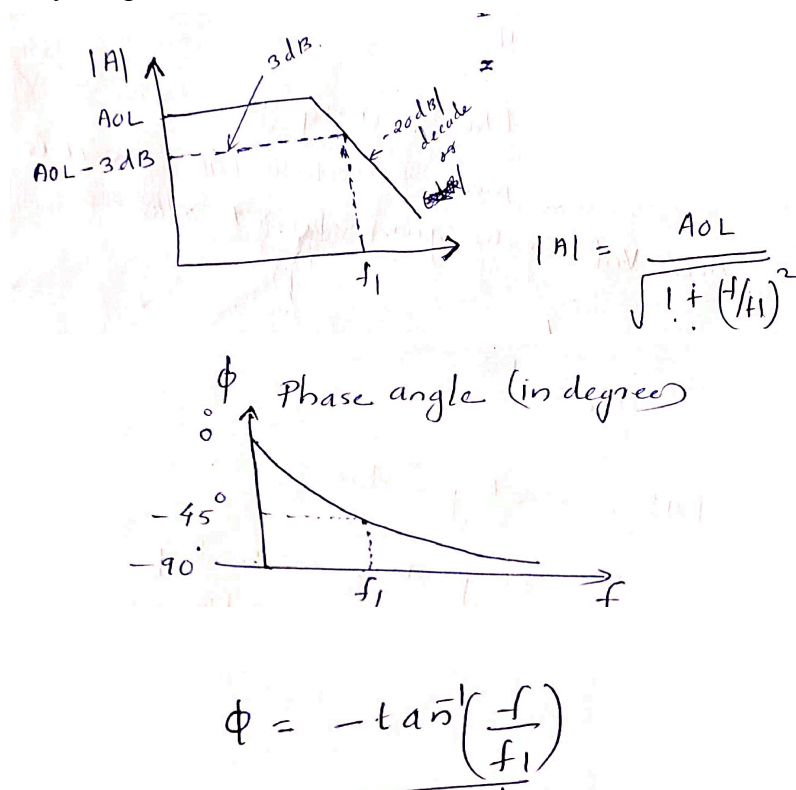 |A|
3dB.
AOL
AOL - 3dB
-20dB/
decade
or
f1
|A| = AOL / √(1 + (f/f1)²)
ϕ Phase angle (in degrees)
0°
-45°
-90°
f1
f
ϕ = -tan⁻¹(f/f1)